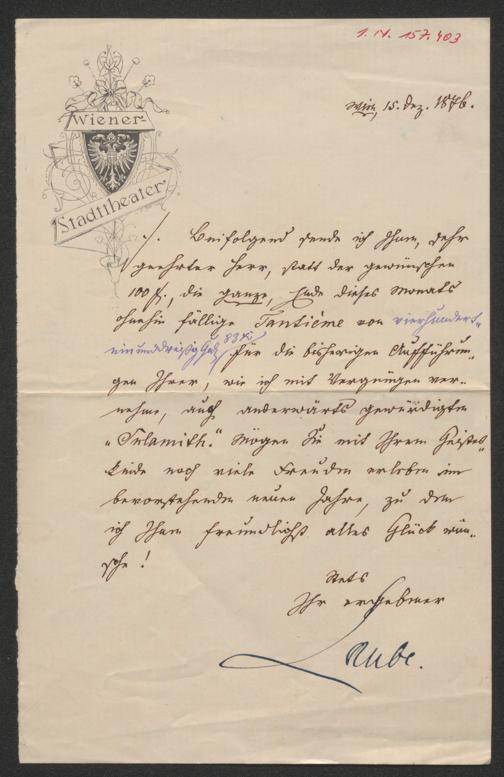 I. N. 157.403
Wiener-
Stadttheater
Wien, 15. Dez. 1876.
./. Beifolgend sende ich Ihnen, sehr
geehrter Herr, statt der gewünschten
100 fl., die ganze, Ende dieses Monats
ohnehin fällige Tantième von vierhundert-
einunddreißig Guld 83 x für die bisherigen Aufführun-
gen Ihrer, wie ich mit Vergnügen ver-
nehme, auch anderwärts gewürdigten
„Sulamith.“ Mögen Sie mit Ihrem Geistes-
kinde noch viele Freuden erleben im
bevorstehenden neuen Jahre, zu dem
ich Ihnen freundlichst alles Glück wün-
sche!
Stets
Ihr ergebener
Laube.